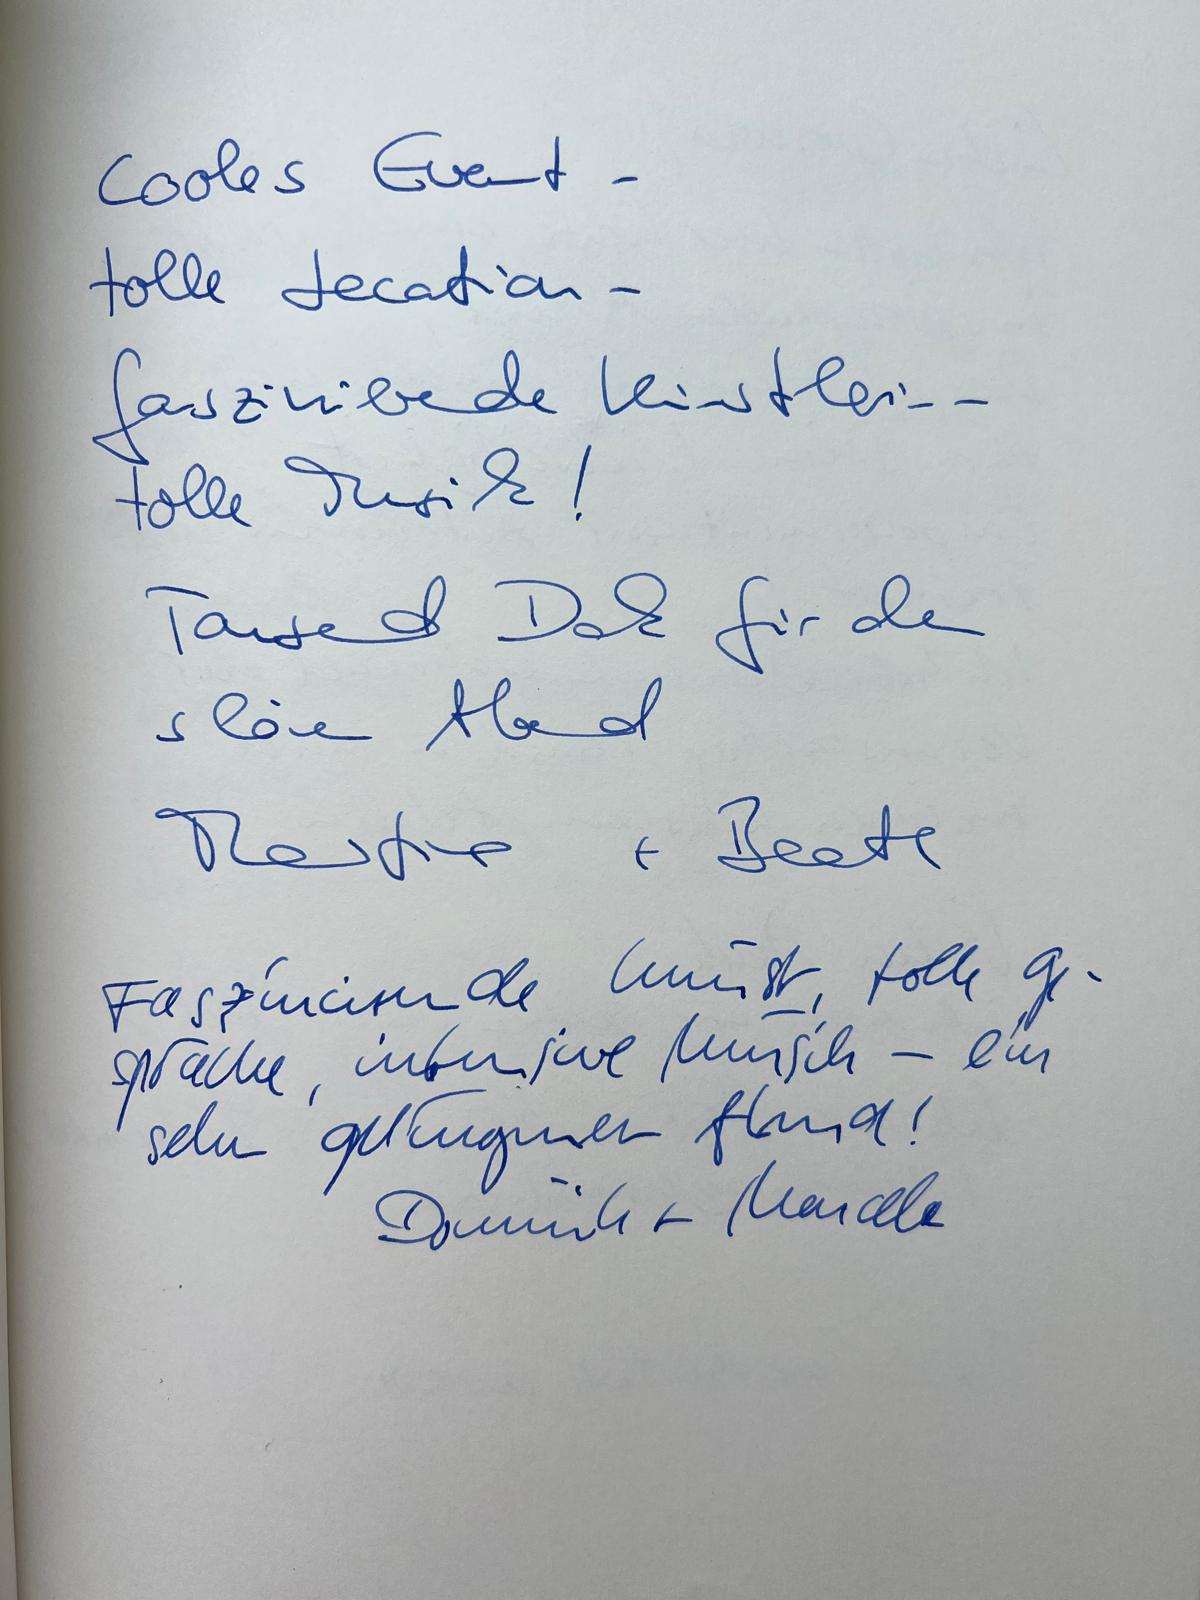 Cooles Event -
tolle Location -
faszinierende Künstlerin -
tolle Musik!
Tausend Dank für den
schönen Abend
Martina + Beate
Faszinierende Kunst, tolle Ge-
spräche, intensive Musik – ein
sehr gelungener Abend!
Dominik +